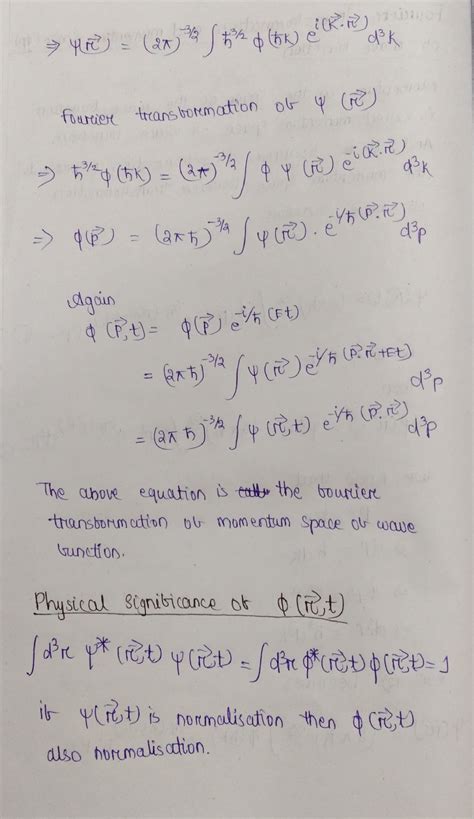 ⇒ ψ(r⃗) = (2π)^{-3/2} ∫ ħ^{3/2} φ(ħk) e^{i(K⃗·r⃗)} d³k
Fourier transformation of ψ(r⃗)
⇒ ħ^{3/2} φ(ħk) = (2π)^{-3/2} ∫ φ ψ(r⃗) e^{-i(K⃗·r⃗)} d³k
⇒ φ(p⃗) = (2πħ)^{-3/2} ∫ ψ(r⃗). e^{-i/ħ (P⃗·r⃗)} d³p
Again
φ(P⃗,t) = φ(P⃗) e^{-i/ħ (Et)}
= (2πħ)^{-3/2} ∫ ψ(r⃗) e^{-i/ħ (P⃗·r⃗+Et)} d³p
= (2πħ)^{-3/2} ∫ ψ(r⃗,t) e^{-i/ħ (P⃗·r⃗)} d³p
The above equation is the fourier
transformation of momentum space of wave
function.
Physical significance of φ(r⃗,t)
∫d³r ψ*(r⃗,t) ψ(r⃗,t) = ∫d³r φ*(r⃗,t) φ(r⃗,t) = 1
if ψ(r⃗,t) is normalisation then φ(r⃗,t)
also normalisation.